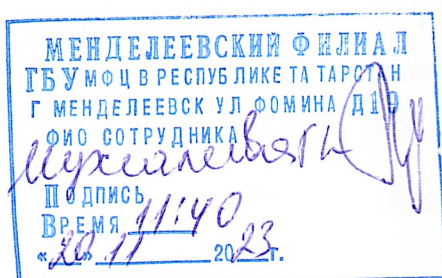 МЕНДЕЛЕЕВСКИЙ ФИЛИАЛ
ГБУ МФЦ В РЕСПУБЛИКЕ ТА ТАРСТАН
Г МЕНДЕЛЕЕВСК УЛ ФОМИНА Д19
ФИО СОТРУДНИКА
ПОДПИСЬ
ВРЕМЯ 11:40
«20» 11 2023г.